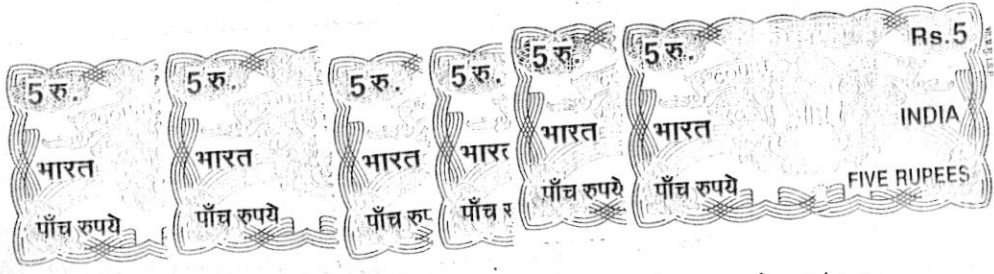 5 रु.
भारत
पाँच रुपये
5 रु.
भारत
पाँच रुपये
5 रु.
भारत
पाँच रुप
5 रु.
भारत
पाँच रु
5 रु.
भारत
पाँच रुपये
5 रु. Rs.5
भारत INDIA
पाँच रुपये FIVE RUPEES